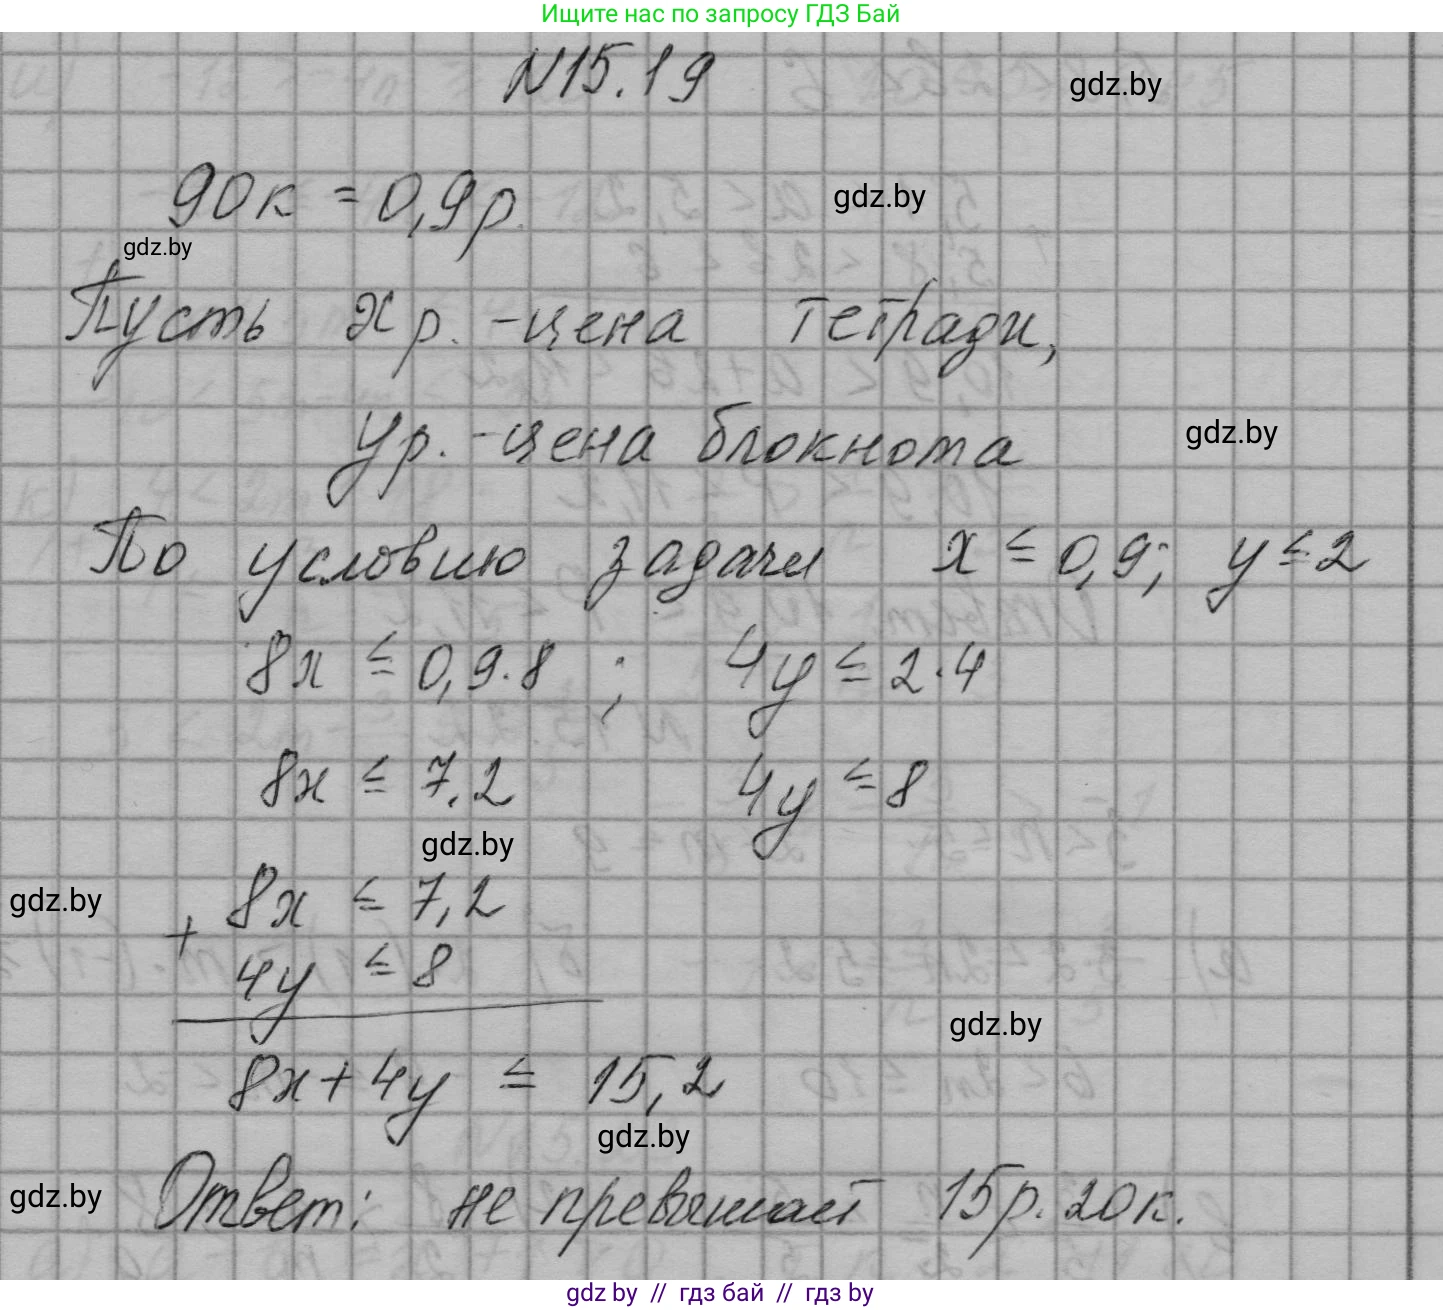 Ищите нас по запросу ГДЗ Бай
N15.19
gdz.by
90к = 0,9р.
gdz.by
gdz.by
Пусть х р. - цена тетради,
у р. - цена блокнота
gdz.by
По условию задачи х ≤ 0,9; у ≤ 2
8х ≤ 0,9·8 ; 4у ≤ 2·4
8х ≤ 7,2 4у ≤ 8
gdz.by
gdz.by
8х ≤ 7,2
+
4у ≤ 8
gdz.by
8х+4у ≤ 15,2
gdz.by
gdz.by
Ответ: не превышает 15р. 20к.
gdz.by // гдз бай // гдз by